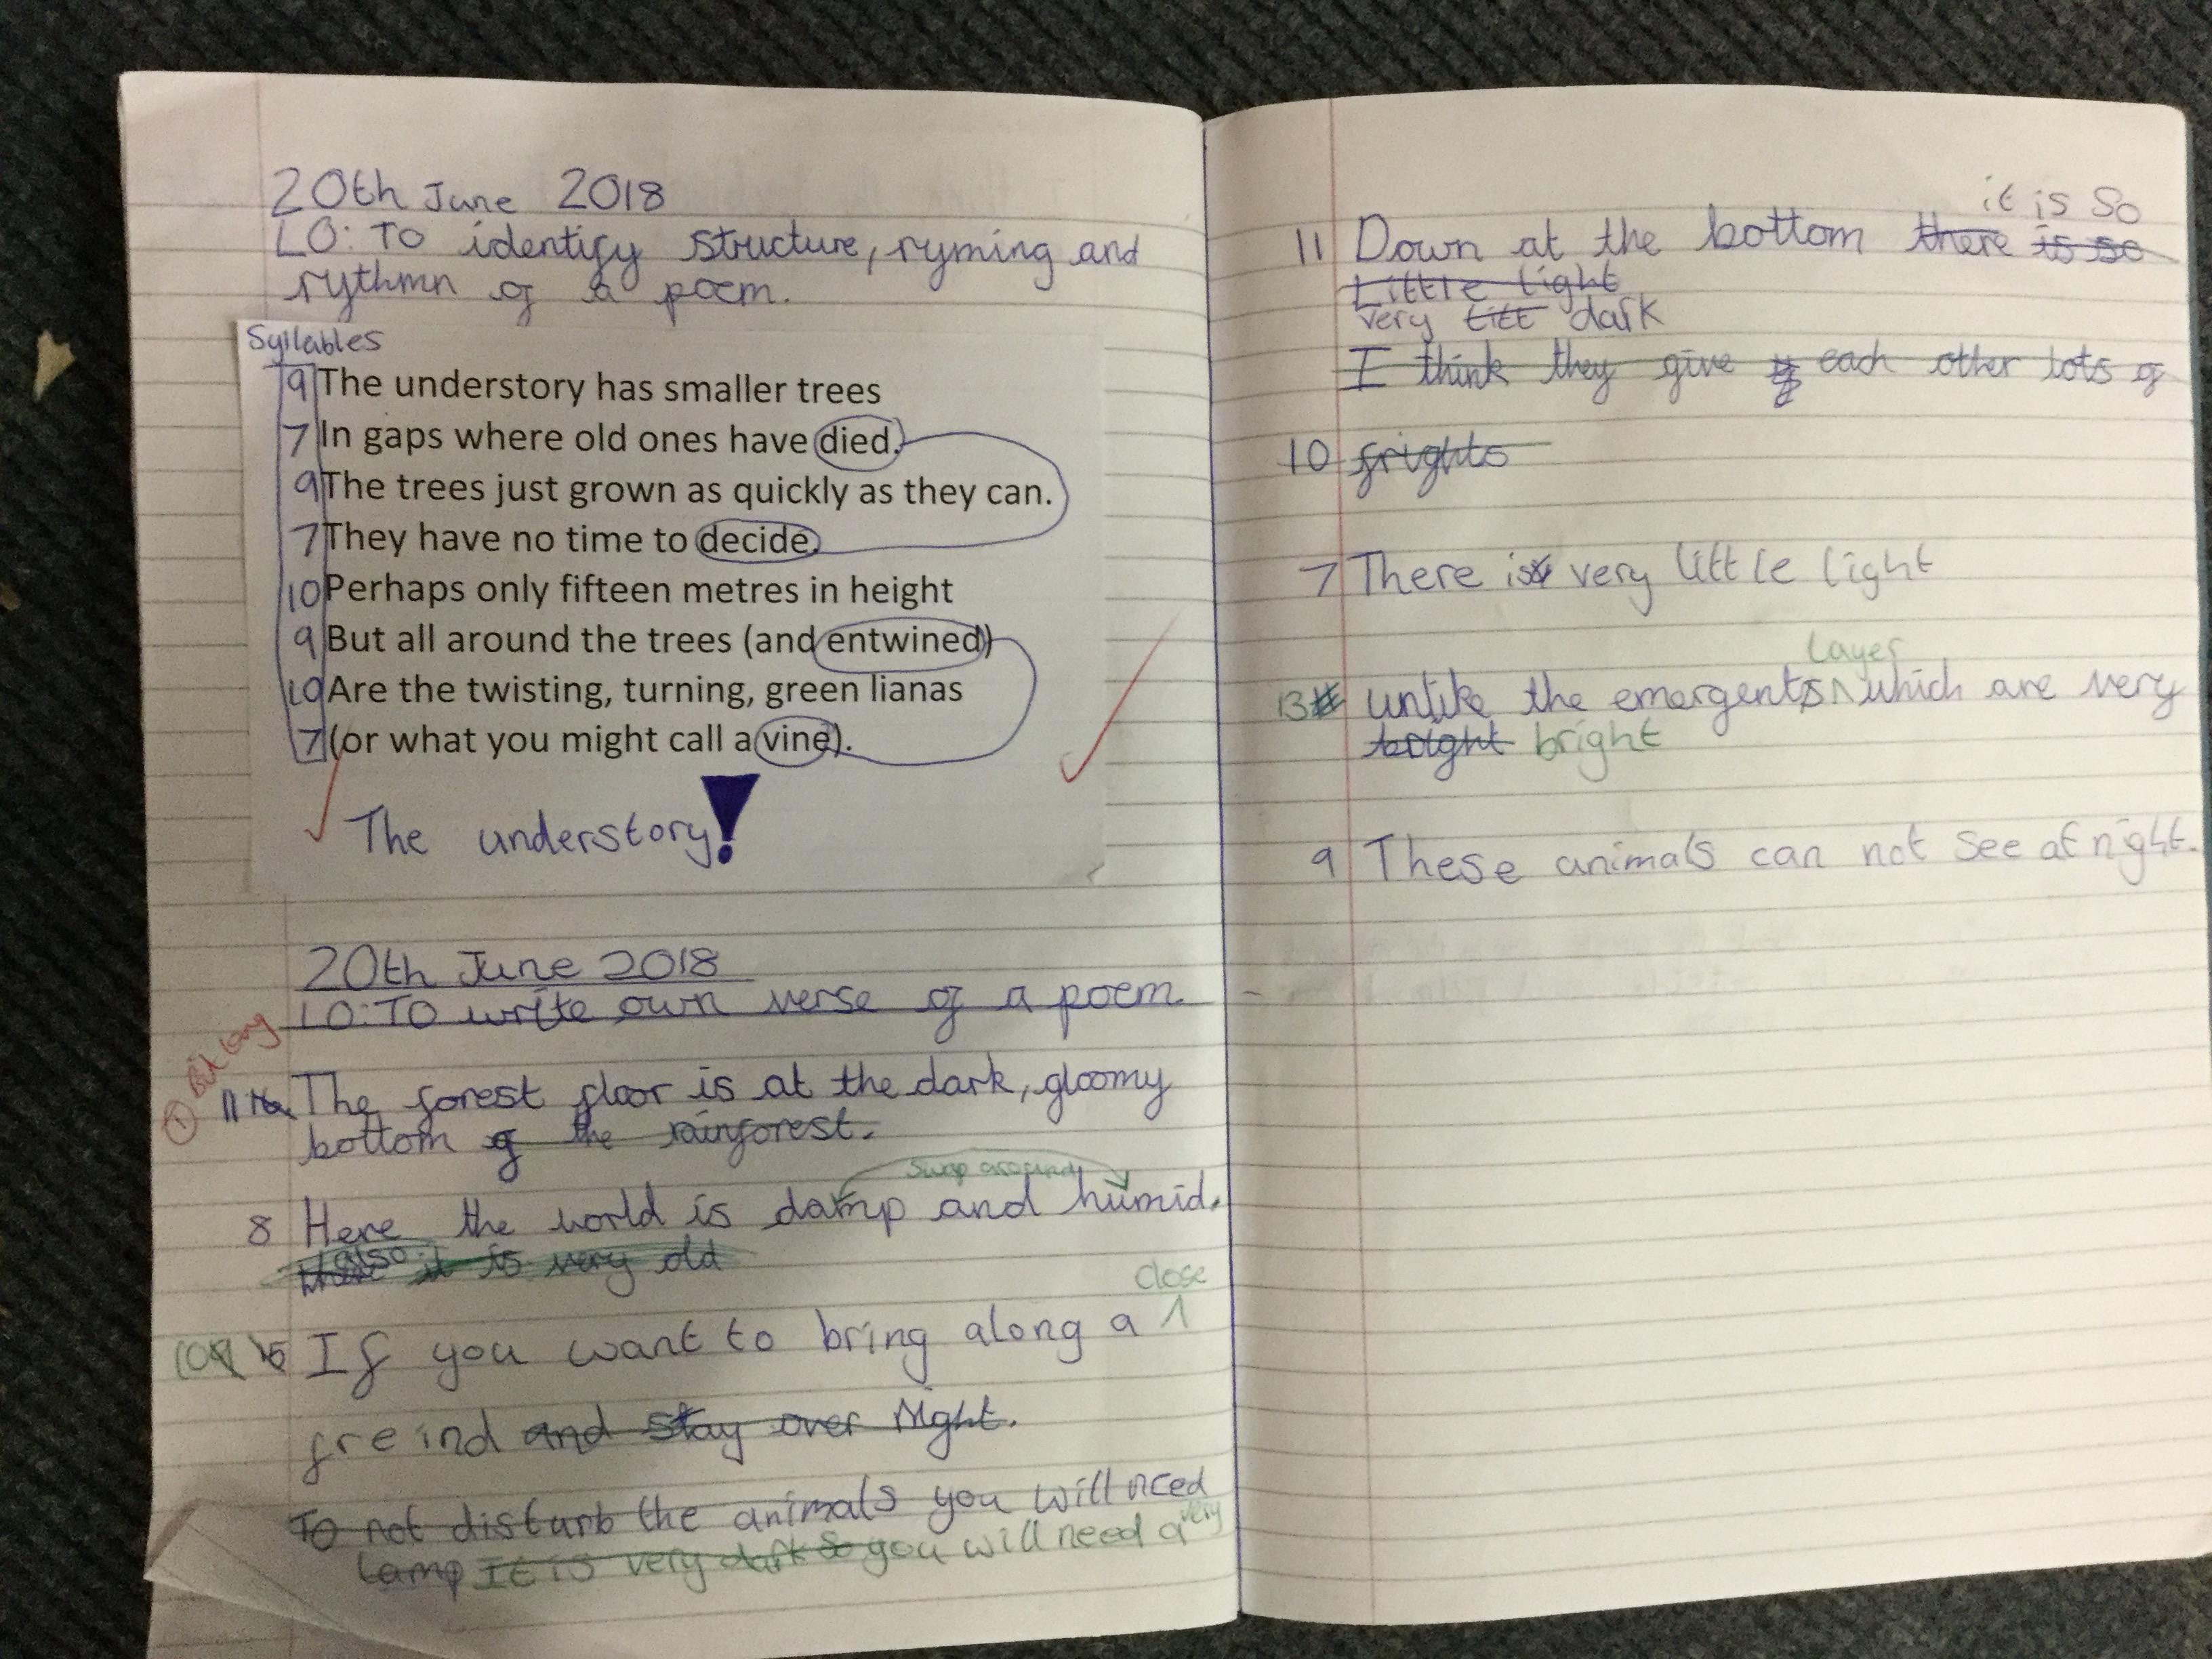 20th June 2018
LO: To identify structure, ryming and
rythmn of a poem.
Syllables
9 The understory has smaller trees
7 In gaps where old ones have died.
9 The trees just grown as quickly as they can.
7 They have no time to decide.
10 Perhaps only fifteen metres in height
9 But all around the trees (and entwined)
10 Are the twisting, turning, green lianas
7 (or what you might call a vine).
The understory!
20th June 2018
LO: To write own verse of a poem.
1 Bit long
11 The forest floor is at the dark, gloomy
bottom of the rainforest.
swap around
8 Here the world is damp and humid.
also it is very old
close
10 If you want to bring along a ^
freind and stay over night.
To not disturb the animals you will need
very
lamp It is very dark so you will need a
it is so
11 Down at the bottom there is so
Little light
very litt dark
I think they give each other lots of
10 frights
7 There is very little light
Layer
13 unlike the emergents ^ which are very
bright bright
9 These animals can not see at night.